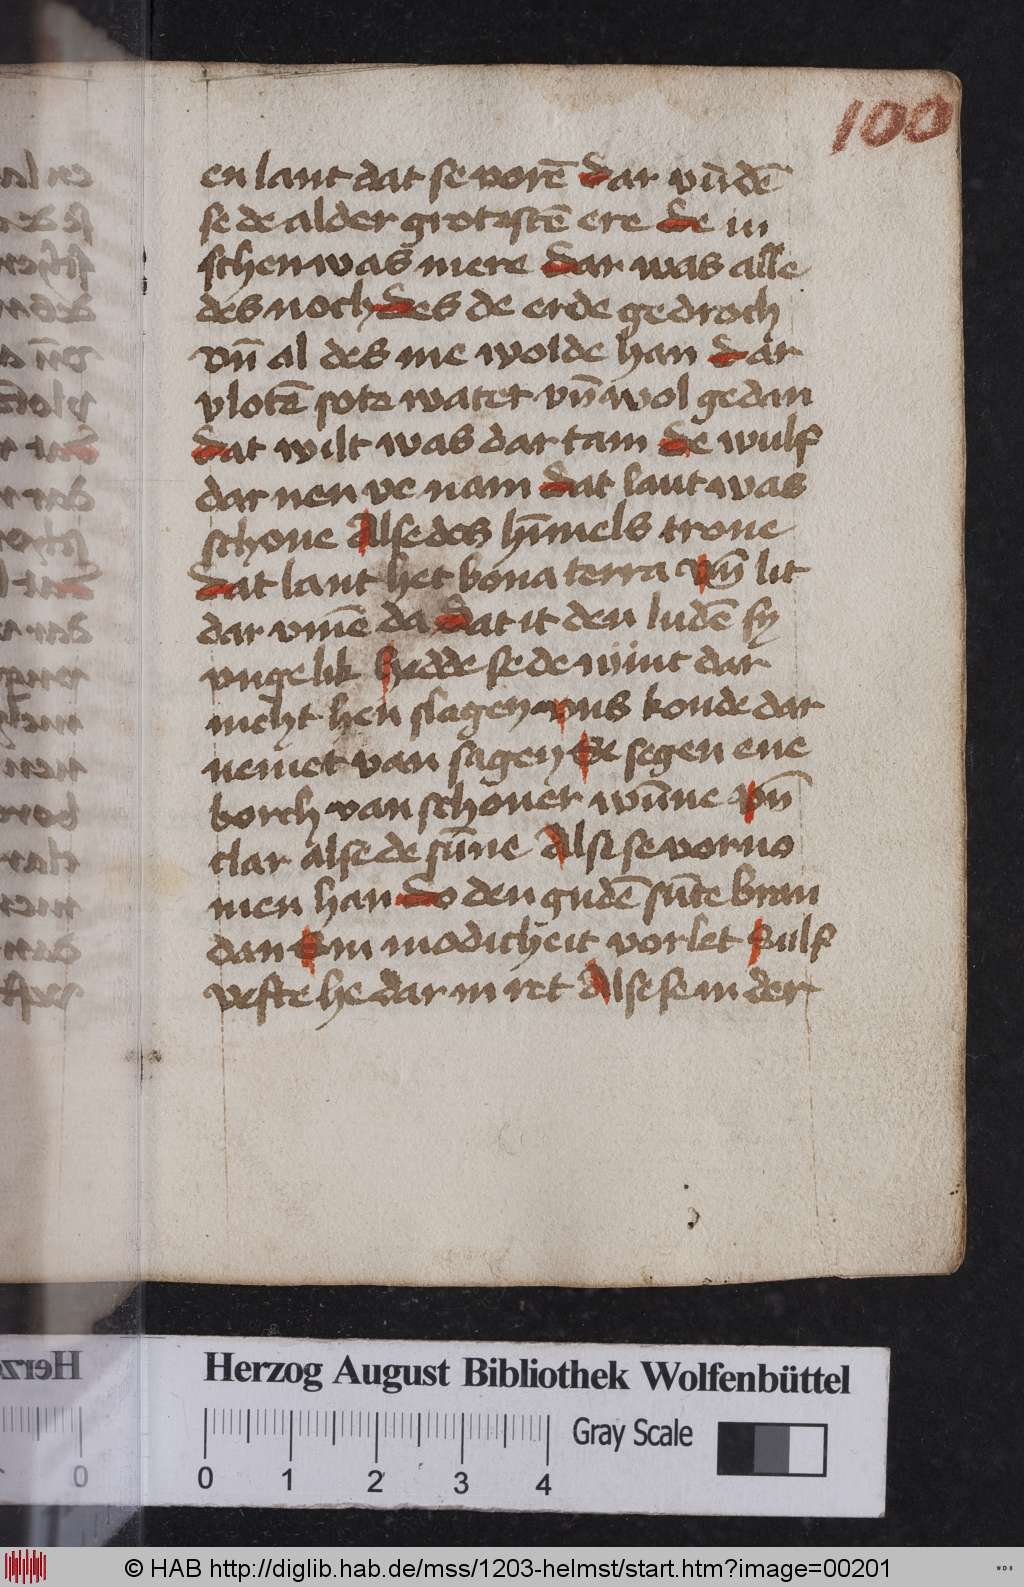 100
en lant dat se vorē dar vūdē
se de alder grotestē ere de in
schen was mere dar was alle
des noch des de erde gedroch
vn̄ al des me wolde han dar
vlotē sote water vn̄ wol gedan
dat wilt was dar tam de wulf
dar nen ve nam dat lant was
schone Alse des hīmels trone
dat lant het bona terra vn̄ lit
dar vmē da dat it den ludē sy
vnge lik hedde se de wint dar
nicht hen slagen vns konde dar
nemet van sagen Se segen ene
borch van schoner wūne vn̄
clar alse de sūne Alsi se vorno
men han do den gudē sūte bran
dan Sin modicheit vorlet Sulf
veste he dar in ret Alse se in der
Herzog August Bibliothek Wolfenbüttel
Gray Scale
0 1 2 3 4
© HAB http://diglib.hab.de/mss/1203-helmst/start.htm?image=00201